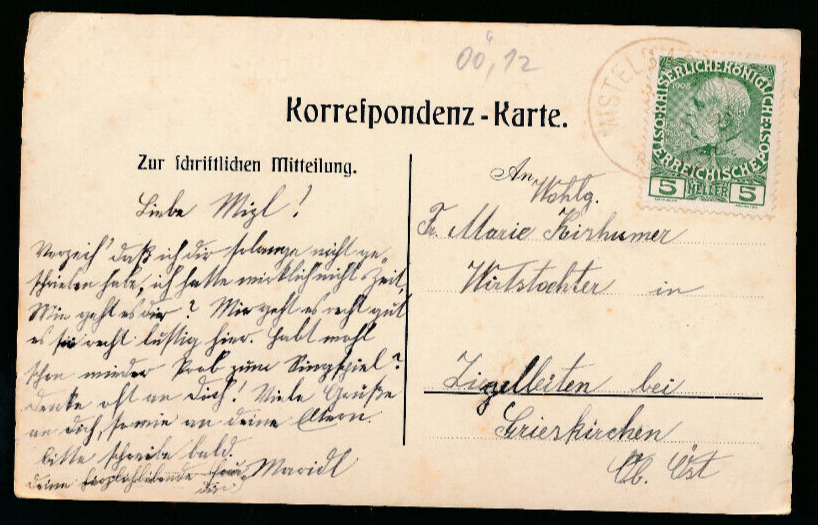 00,12
Korrespondenz-Karte.
MISTEL
KAISERLICHE KÖNIGLICHE
ÖSTERREICHISCHE POST
1908
5 HELLER 5
Zur schriftlichen Mitteilung.
Liebe Mizl!
Verzeih' daß ich dir solange nicht ge-
schrieben habe, ich hatte wirklich nicht Zeit.
Wie geht es dir? Mir geht es recht gut
es recht lustig hier. Habt wohl
schon wieder Prob zum Singspiel?
denke oft an Dich! Viele Grüße
an dich, sowie an deine Eltern.
bitte schreibe bald.
deine herzlichliebende Maridl
An
Wohlg.
Fr. Marie Kirhumer
Wirtstochter in
Zigelleiten bei
Grieskirchen
Ob. Öst